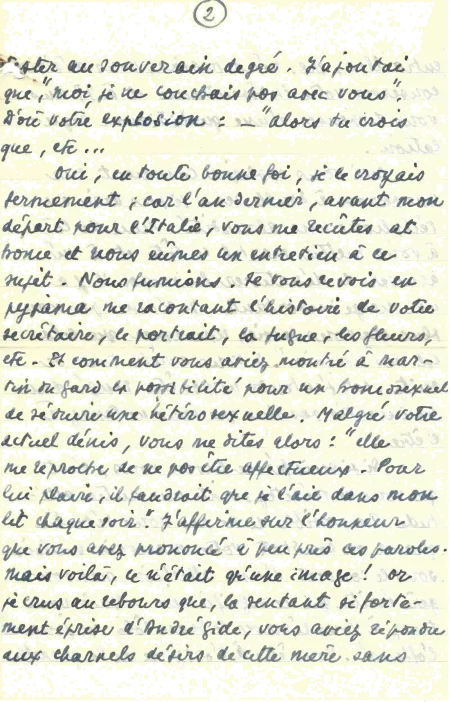 2
ster au souverain degré. J'ajoutai
que, "moi, je ne couchais pas avec vous".
D'où votre explosion : – "alors tu crois"
que, etc...
Oui, en toute bonne foi, je le croyais
fermement ; car l'an dernier, avant mon
départ pour l'Italie, vous me reçûtes at
home et nous eûmes un entretien à ce
sujet. Nous fumions. Je vous revois en
pyjama me racontant l'histoire de votre
secrétaire, le portrait, la fugue, les fleurs,
etc. Et comment vous aviez montré à Mar-
tin du Gard la possibilité pour un homosexuel
de séduire une hétérosexuelle. Malgré votre
actuel dénis, vous me dites alors : "elle
me reproche de ne pas être affectueux. Pour
lui plaire, il faudrait que je l'aie dans mon
lit chaque soir". J'affirme sur l'honneur
que vous avez prononcé à peu près ces paroles.
Mais voilà, ce n'était qu'une image! or
je crus au rebours que, la sentant si forte-
ment éprise d'André Gide, vous aviez répondu
aux charnels désirs de cette mère sans